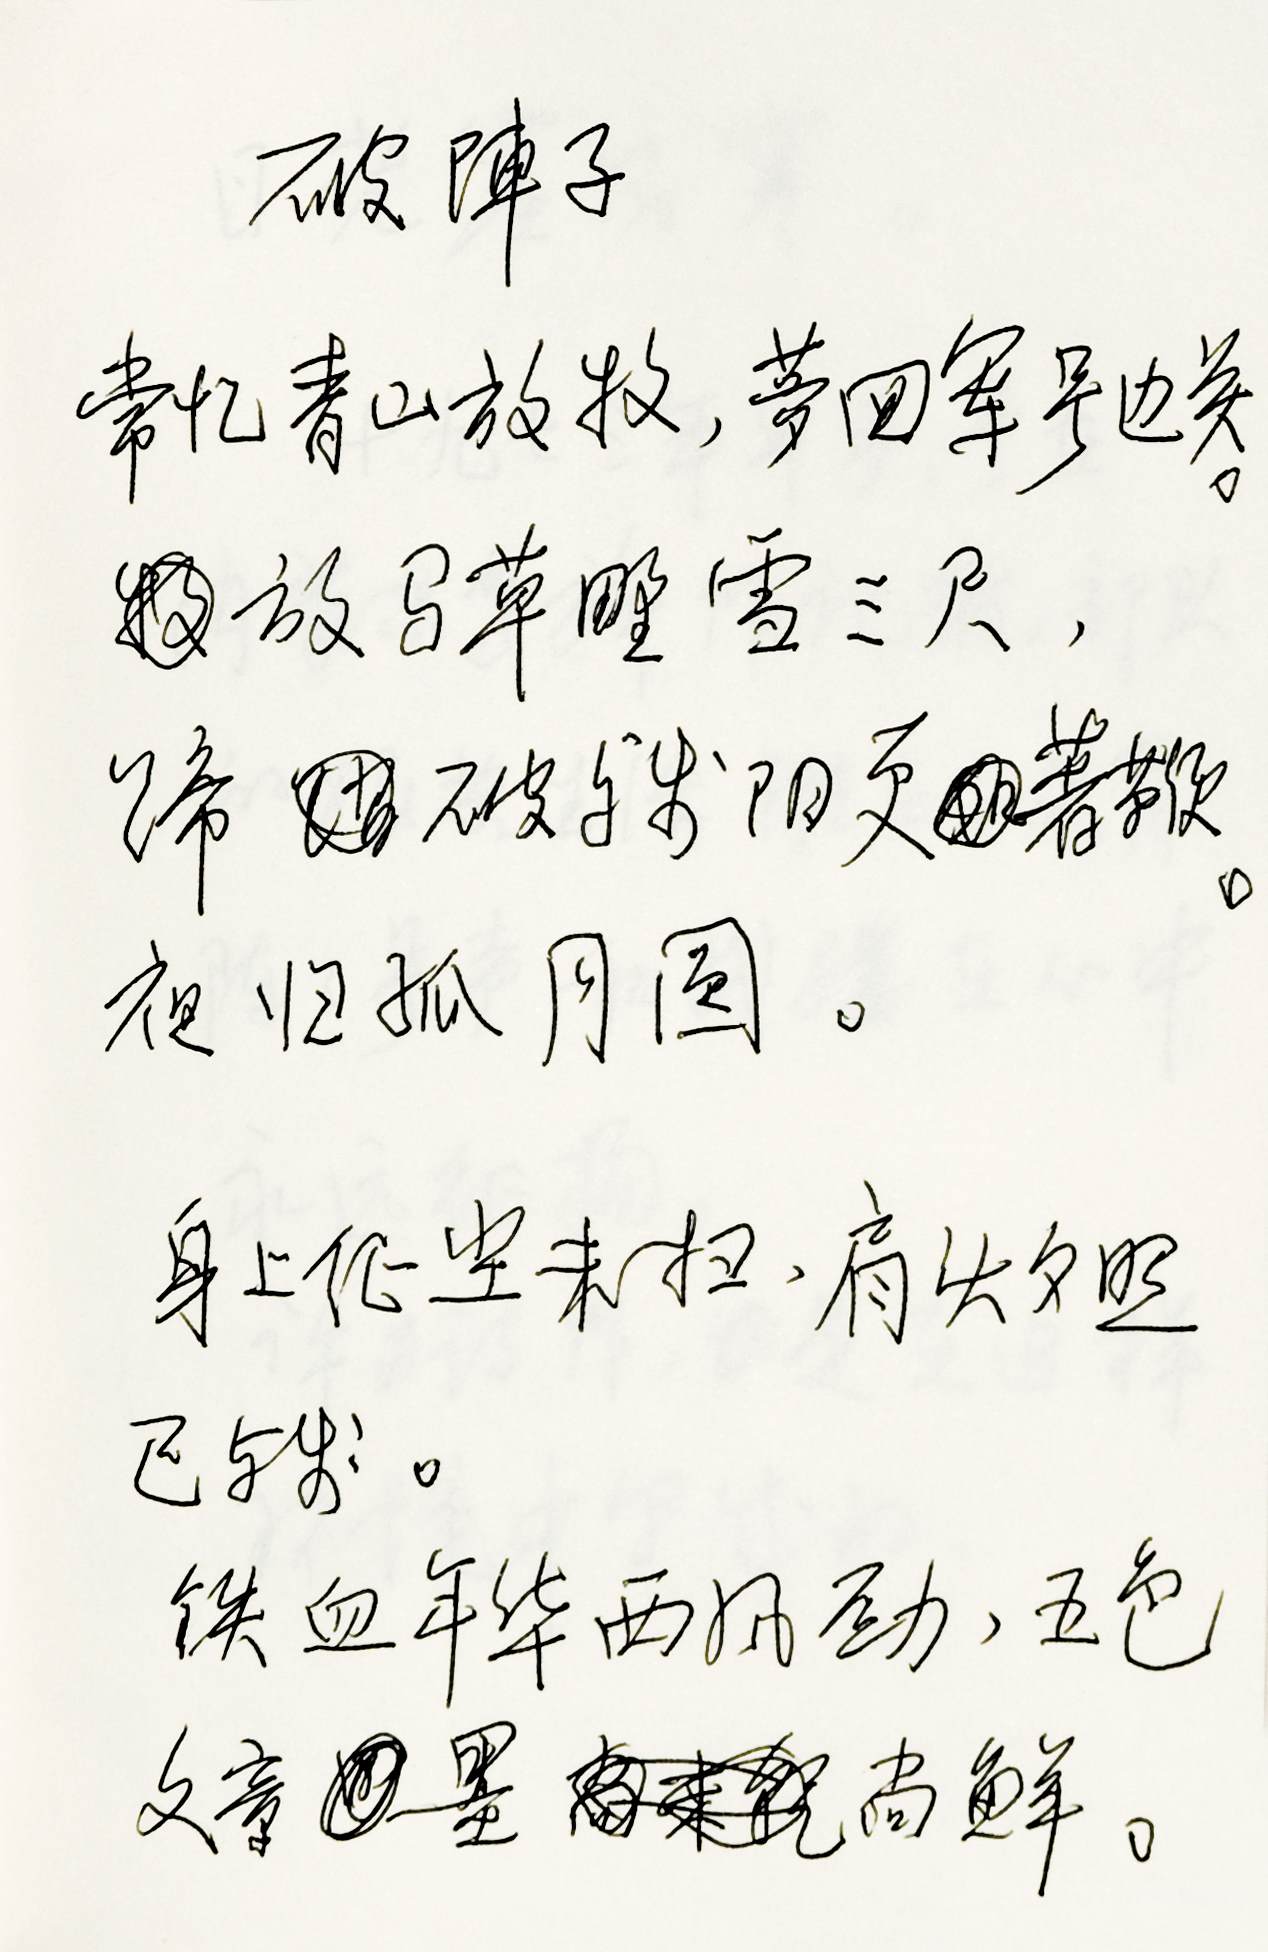 破陣子
常忆青山放牧，夢回军号边关。
放马草野雪三尺，
蹄破残阳更著鞭。
夜归孤月圆。
身上征尘未扫，肩头夕照
已残。
铁血年华西风劲，五色
文章墨尚鲜。